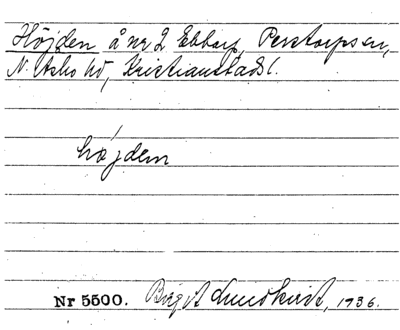 Höjden å nr 2 Ebbarp, Perstorps sn,
N. Åsbo hd, Kristianstads l.
hǿjden
Nr 5500. Birgit Lundkvist, 1936.